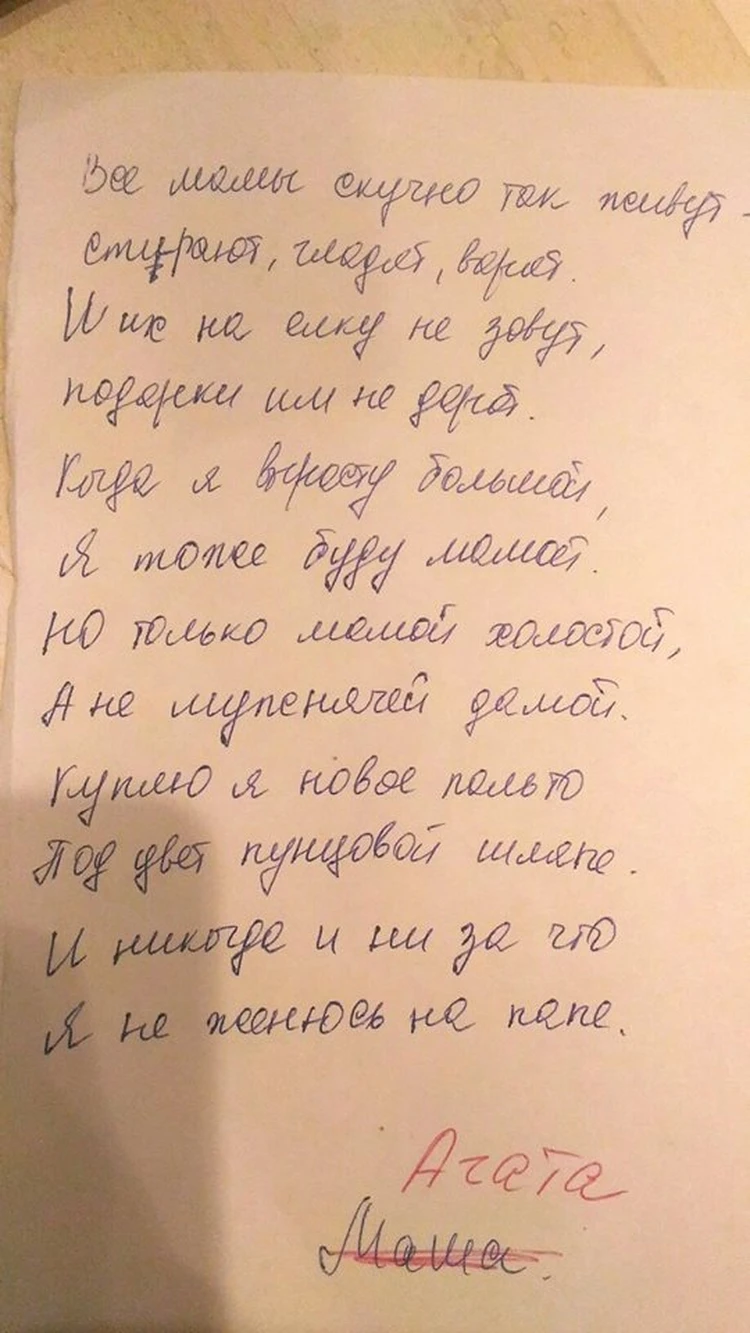 Все мамы скучно так живут -
стирают, гладят, варят.
И их на елку не зовут,
подарки им не дарят.
Когда я вырасту большой,
Я тоже буду мамой.
НО только мамой холостой,
А не мужчнячей дамой.
Куплю я новое пальто
Под цвет пунцовой шляпе.
И никогда и ни за что
Я не женюсь на папе.
Агата
Маша.